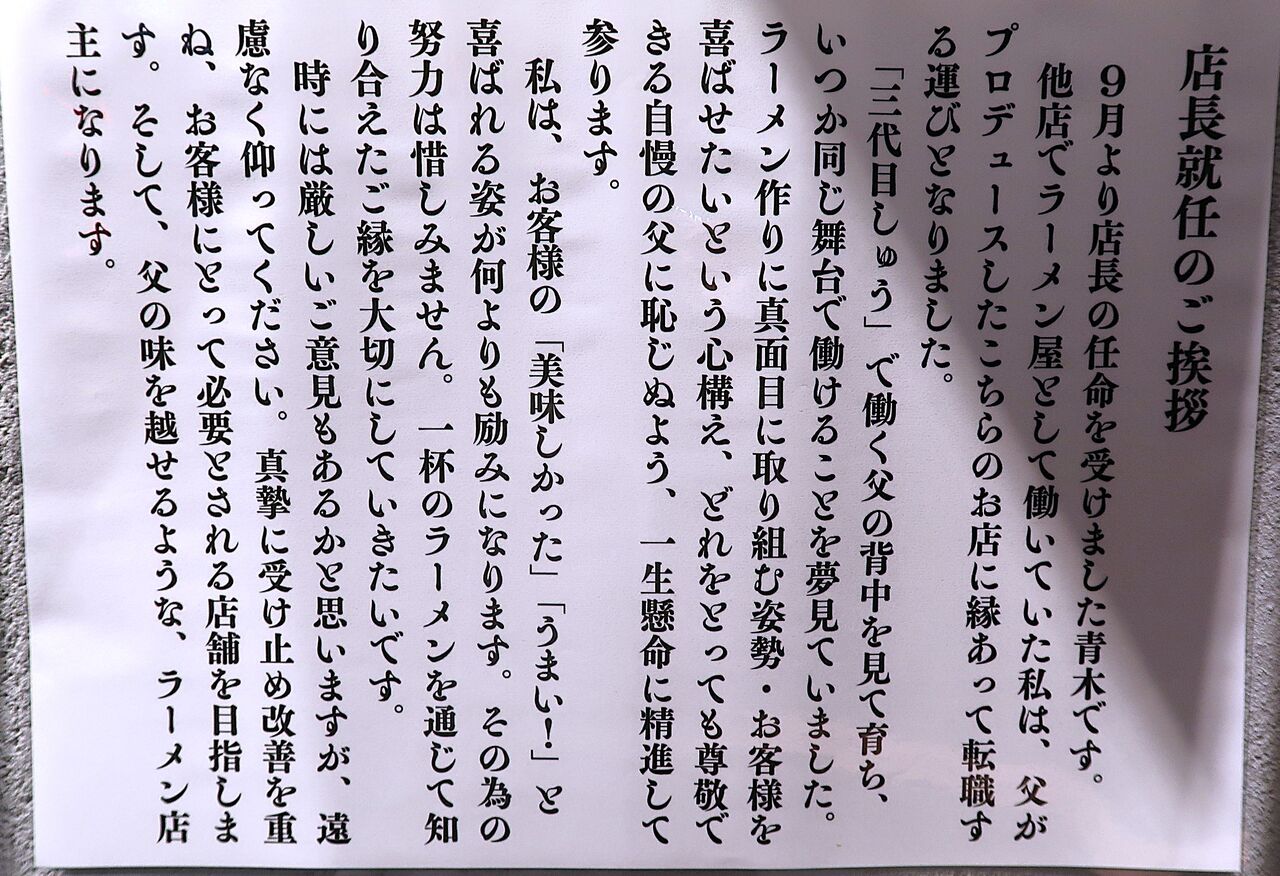 店長就任のご挨拶
9月より店長の任命を受けました青木です。
他店でラーメン屋として働いていた私は、父が
プロデュースしたこちらのお店に縁あって転職す
る運びとなりました。
「三代目しゅう」で働く父の背中を見て育ち、
いつか同じ舞台で働けることを夢見ていました。
ラーメン作りに真面目に取り組む姿勢・お客様を
喜ばせたいという心構え、どれをとっても尊敬で
きる自慢の父に恥じぬよう、一生懸命に精進して
参ります。
私は、お客様の「美味しかった」「うまい!」と
喜ばれる姿が何よりも励みになります。その為の
努力は惜しみません。一杯のラーメンを通じて知
り合えたご縁を大切にしていきたいです。
時には厳しいご意見もあるかと思いますが、遠
慮なく仰ってください。真摯に受け止め改善を重
ね、お客様にとって必要とされる店舗を目指しま
す。そして、父の味を越せるような、ラーメン店
主になります。